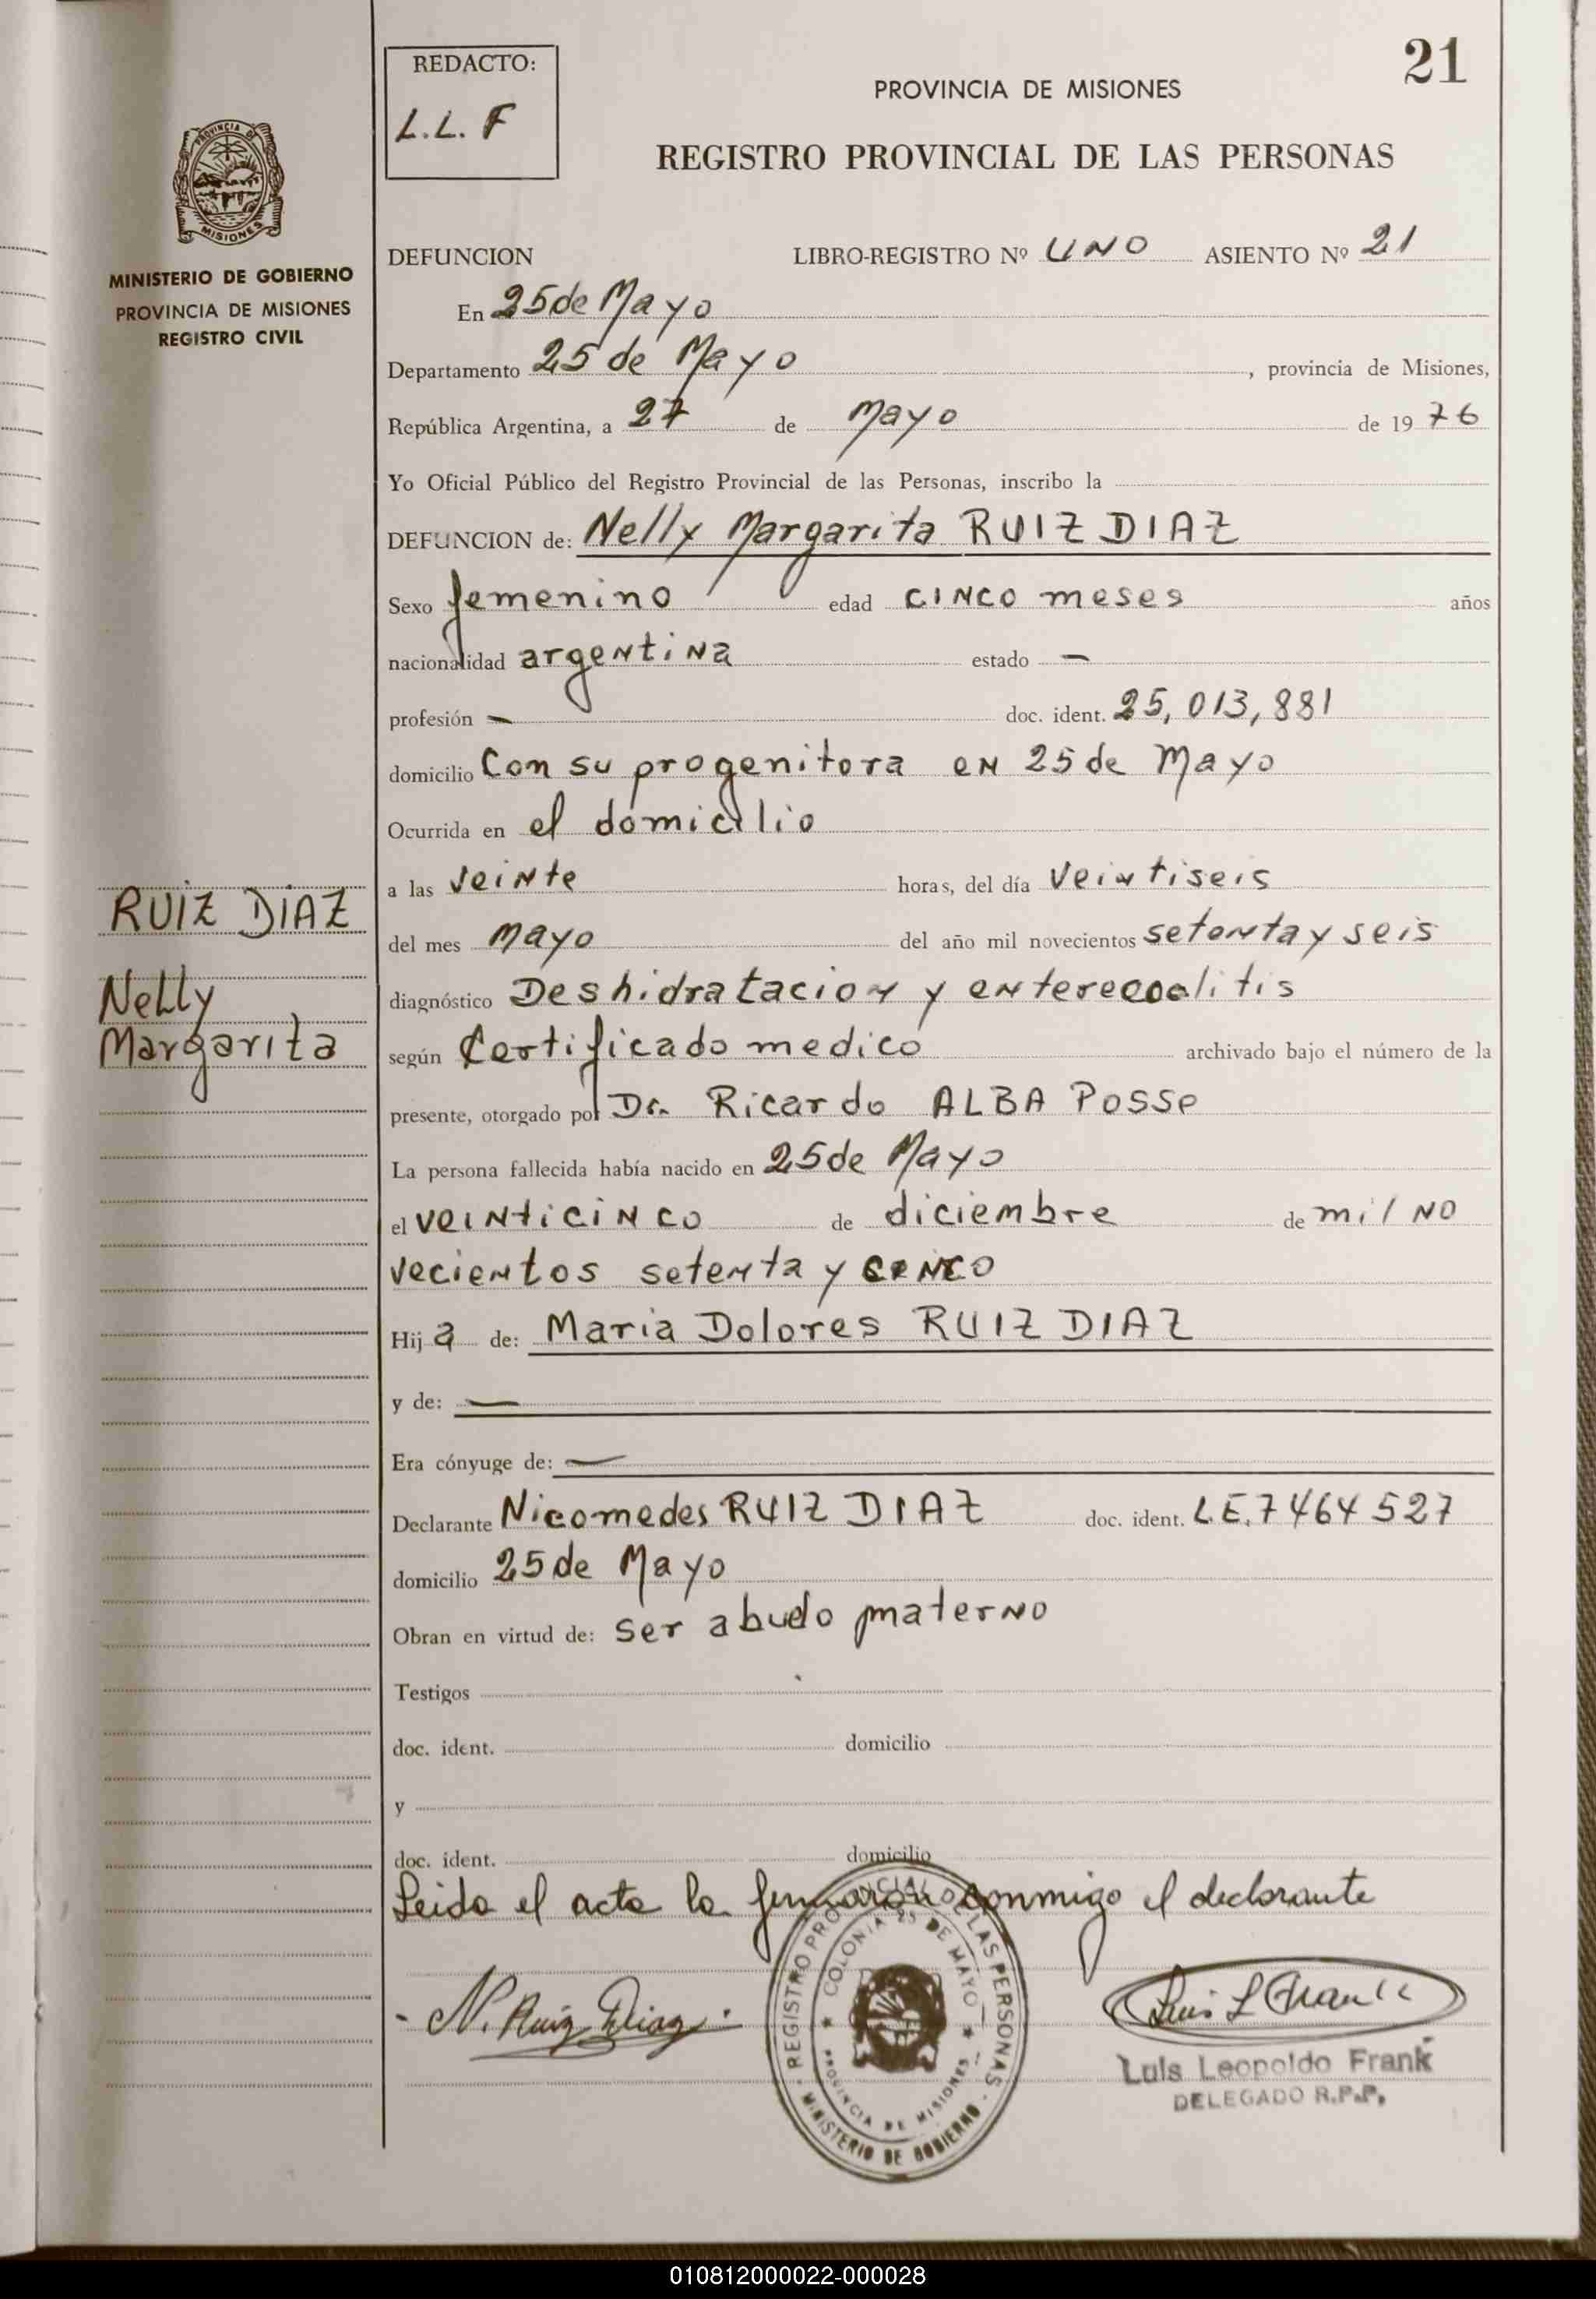 21
REDACTO:
L.L.F
PROVINCIA DE MISIONES
REGISTRO PROVINCIAL DE LAS PERSONAS
PROVINCIA DE
MISIONES
MINISTERIO DE GOBIERNO
PROVINCIA DE MISIONES
REGISTRO CIVIL
DEFUNCION LIBRO-REGISTRO Nº UNO ASIENTO Nº 21
En 25 de Mayo
Departamento 25 de Mayo, provincia de Misiones,
República Argentina, a 27 de mayo de 1976
Yo Oficial Público del Registro Provincial de las Personas, inscribo la
DEFUNCION de: Nelly Margarita RUIZ DIAZ
Sexo femenino edad CINCO meses años
nacionalidad argentina estado —
profesión — doc. ident. 25,013,881
domicilio Con su progenitora en 25 de Mayo
Ocurrida en el domicilio
a las veinte horas, del día veintiseis
del mes mayo del año mil novecientos setenta y seis
diagnóstico Deshidratacion y
según Certificado medico archivado bajo el número de la
presente, otorgado por Dr. Ricardo ALBA POSSE
La persona fallecida había nacido en 25 de Mayo
el veinticinco de diciembre de mil no
vecientos setenta y cinco
Hija de: Maria Dolores RUIZ DIAZ
y de: —
Era cónyuge de: —
Declarante Nicomedes RUIZ DIAZ doc. ident. L.E. 7464527
domicilio 25 de Mayo
Obran en virtud de: ser abuelo materno
Testigos
doc. ident. domicilio
y
doc. ident. domicilio
Leida el acta la firmaron conmigo el declarante
N. Ruiz Diaz
REGISTRO PROVINCIAL DE LAS PERSONAS
MINISTERIO DE GOBIERNO
COLONIA 25 DE MAYO
PROVINCIA DE MISIONES
Luis L Frank
Luis Leopoldo Frank
DELEGADO R.P.P.
RUIZ DIAZ
Nelly
Margarita
010812000022-000028